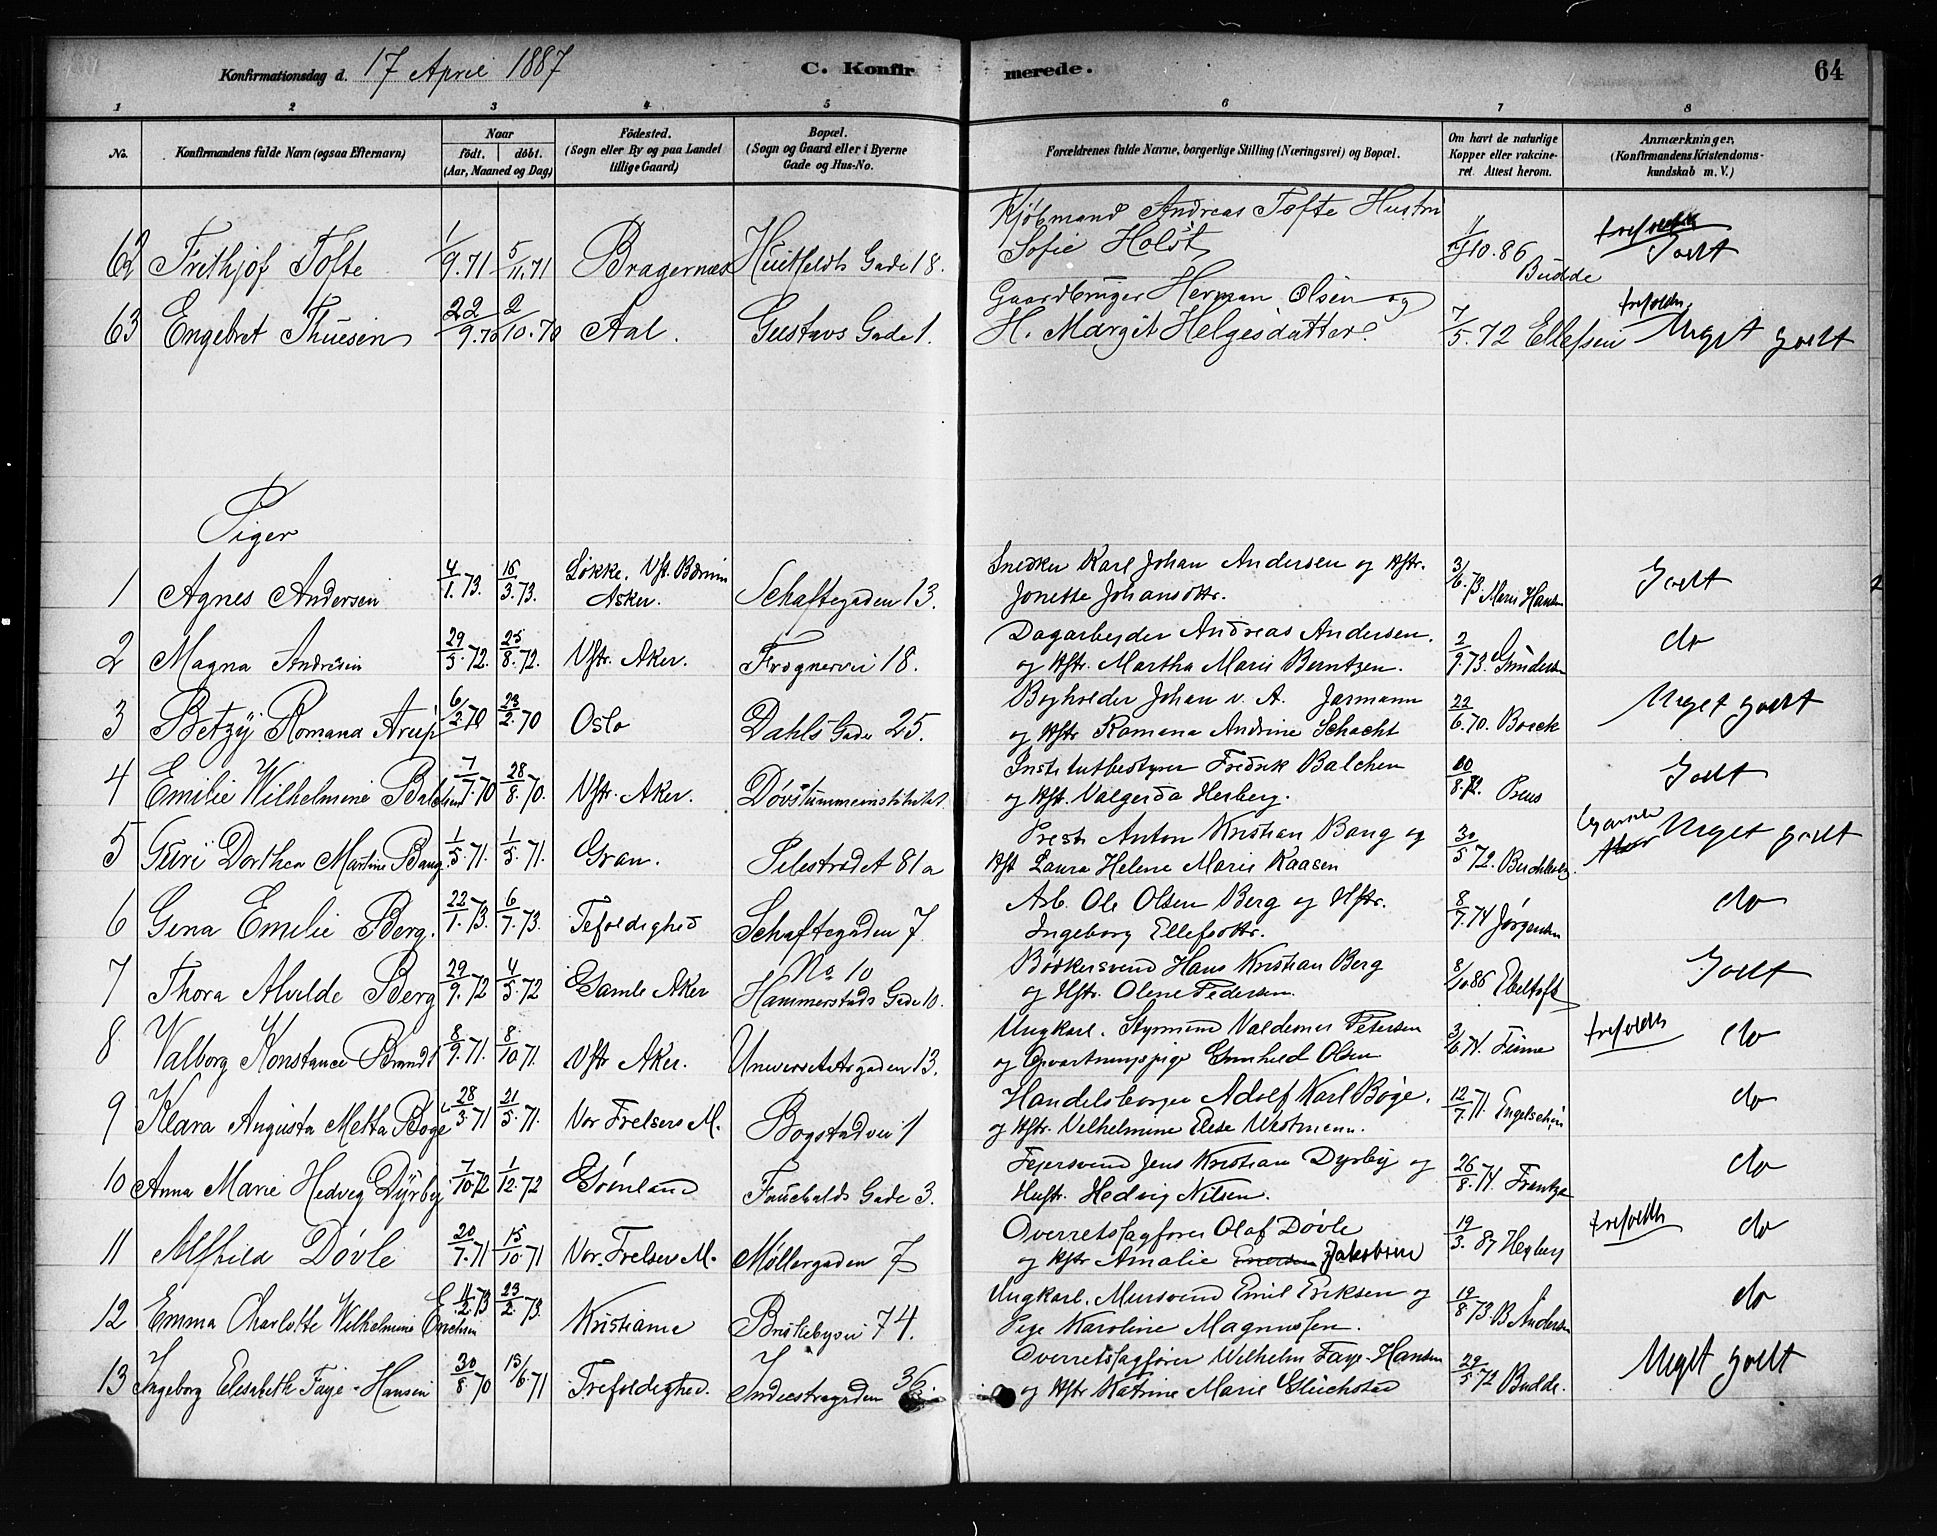 Konfirmationsdag d. 17 April 1887
C. Konfirmerede.
64
1 2 3 4 5 6 7 8
No.
Konfirmandens fulde Navn (ogsaa Efternavn)
Naar
födt. döbt.
(Aar, Maaned og Dag)
Födested.
(Sogn eller By og paa Landet
tillige Gaard)
Bopæl.
(Sogn og Gaard eller i Byerne
Gade og Hus-No.
Forældrenes fulde Navne, borgerlige Stilling (Næringsvei) og Bopæl.
Om havt de naturlige
Kopper eller vakcine-
ret. Attest herom.
Anmærkninger.
(Konfirmandens Kristendoms-
kundskab m. V.)
Kjöbmand Andreas Tofte Hustru
62 Frithjof Tofte 1/9.71 5/11.71 Bragernæs Huitfeldts Gade 18. Sofie Holst 10.86 Budde Godt
Gaardbruger Herman Olsen og
63 Engebret Thuesen 22/9.70 2/10.70 Aal. Gustavs Gade 1. H. Margit Helgesdatter. 7/5.72 Ellefsen Meget godt
Piger
1 Agnes Andersen 4/1.73. 16/3.73. Løkke. Vst. Bærum Asker. Schaftegaden 13. Snedker Karl Johan Andersen og Hstr.
Jonette Johansdttr. 3/6.73 Marie Hansen Godt
2 Magna Andersen 29/5.72. 25/8.72. Vstr. Aker. Frognervei 18. Dagarbejder Andreas Andersen.
og Hstr. Martha Marie Berntzen. 2/9.73. Gundersen do
3 Betzÿ Romana Arup 6/2.70 23/2.70 Oslo Dahls Gade 25. Bogholder Johan v. A. Jarmann
og Hstr Ramona Andrine Schacht 22/6.70. Boeck Meget godt
4 Emilie Wilhelmine Balchen 7/7.70 28/8.70. Vstr. Aker. Døvstummeinstitutet Institutbestyrer Fredrik Balchen
og Hst. Valgerda Herberg. Preus Godt
5 Guri Dorthea Martine Bang 1/5.71. 1/5.71. Gran. Pilestrædet 81a Prest Anton Kristian Bang og
Hst Laura Helene Marie Kaasen 30/5.72. Meget godt
6 Gina Emilie Berg. 22/1.73. 6/7.73. Tefoldighed Schaftegaden 7. Arb. Ole Olsen Berg og Hstr.
Ingeborg Ellefsdttr. 8/7.74 Jørgensen do
7 Thora Alvilde Berg 29/9.72 4/5.72 Gamle Aker No 10 Hammerstads Gade 10. Bødkersvend Hans Kristian Berg
og Hstr. Oline Pedersen. 8/10 86 Ebeltoft Godt
8 Valborg Konstance Brandt 8/9.71. 8/10.71. Vstr Aker. Universitetsgaden 13. Ungkarl. Styrmand Valdemar Petersen
og Opvartningspige Gunhild Olsen 3/6.74. Finne trefoldh do
9 Klara Augusta Metta Böge 28/3.71 21/5.71. Vor Frelsers M. Bogstadvei 1 Handelsborger Adolf Karl Böge.
og Hstr. Vilhelmine Elise Westmann. 12/7.71. Engelschiøn do
10 Anna Marie Hedvig Dÿrbÿ 7/10.72 1/12.72 Grønland Fauchalds Gade 3. Fejersvend Jens Kristian Dyrby og
Hustr. Hedvig Nilsen. 26/8.74. Frantzen do
11 Alfhild Dövle 20/7.71 15/10.71 Vor. Frelser M. Møllergaden 7 Overretssagfører Olaf Døvle
og Hstr Amalie Jakobine 19/3.87 Hegberg trefoldh do
12 Emma Charlotte Wilhelmine Erichsen 11/2.73 23/2.73. Kristiania Briskebyvei 74. Ungkarl. Mursvend Emil Eriksen og
Pige Karoline Magnussen. 19/8 73 B Andersen do
13 Ingeborg Elisabeth Faye-Hansen 30/8.70 15/6.71 Trefoldighed. Industrigaden 36. Overretssagfører Wilhelm Faye-Hansen
og Hstr Katrine Marie Glückstad 29/5 72 Budde. Meget godt